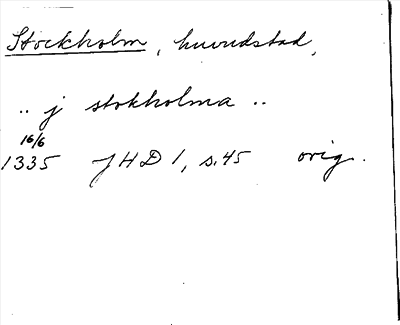 Stockholm, huvudstad,
.. j stokholma ..
16/6
1335 JHD 1, s.45 orig.